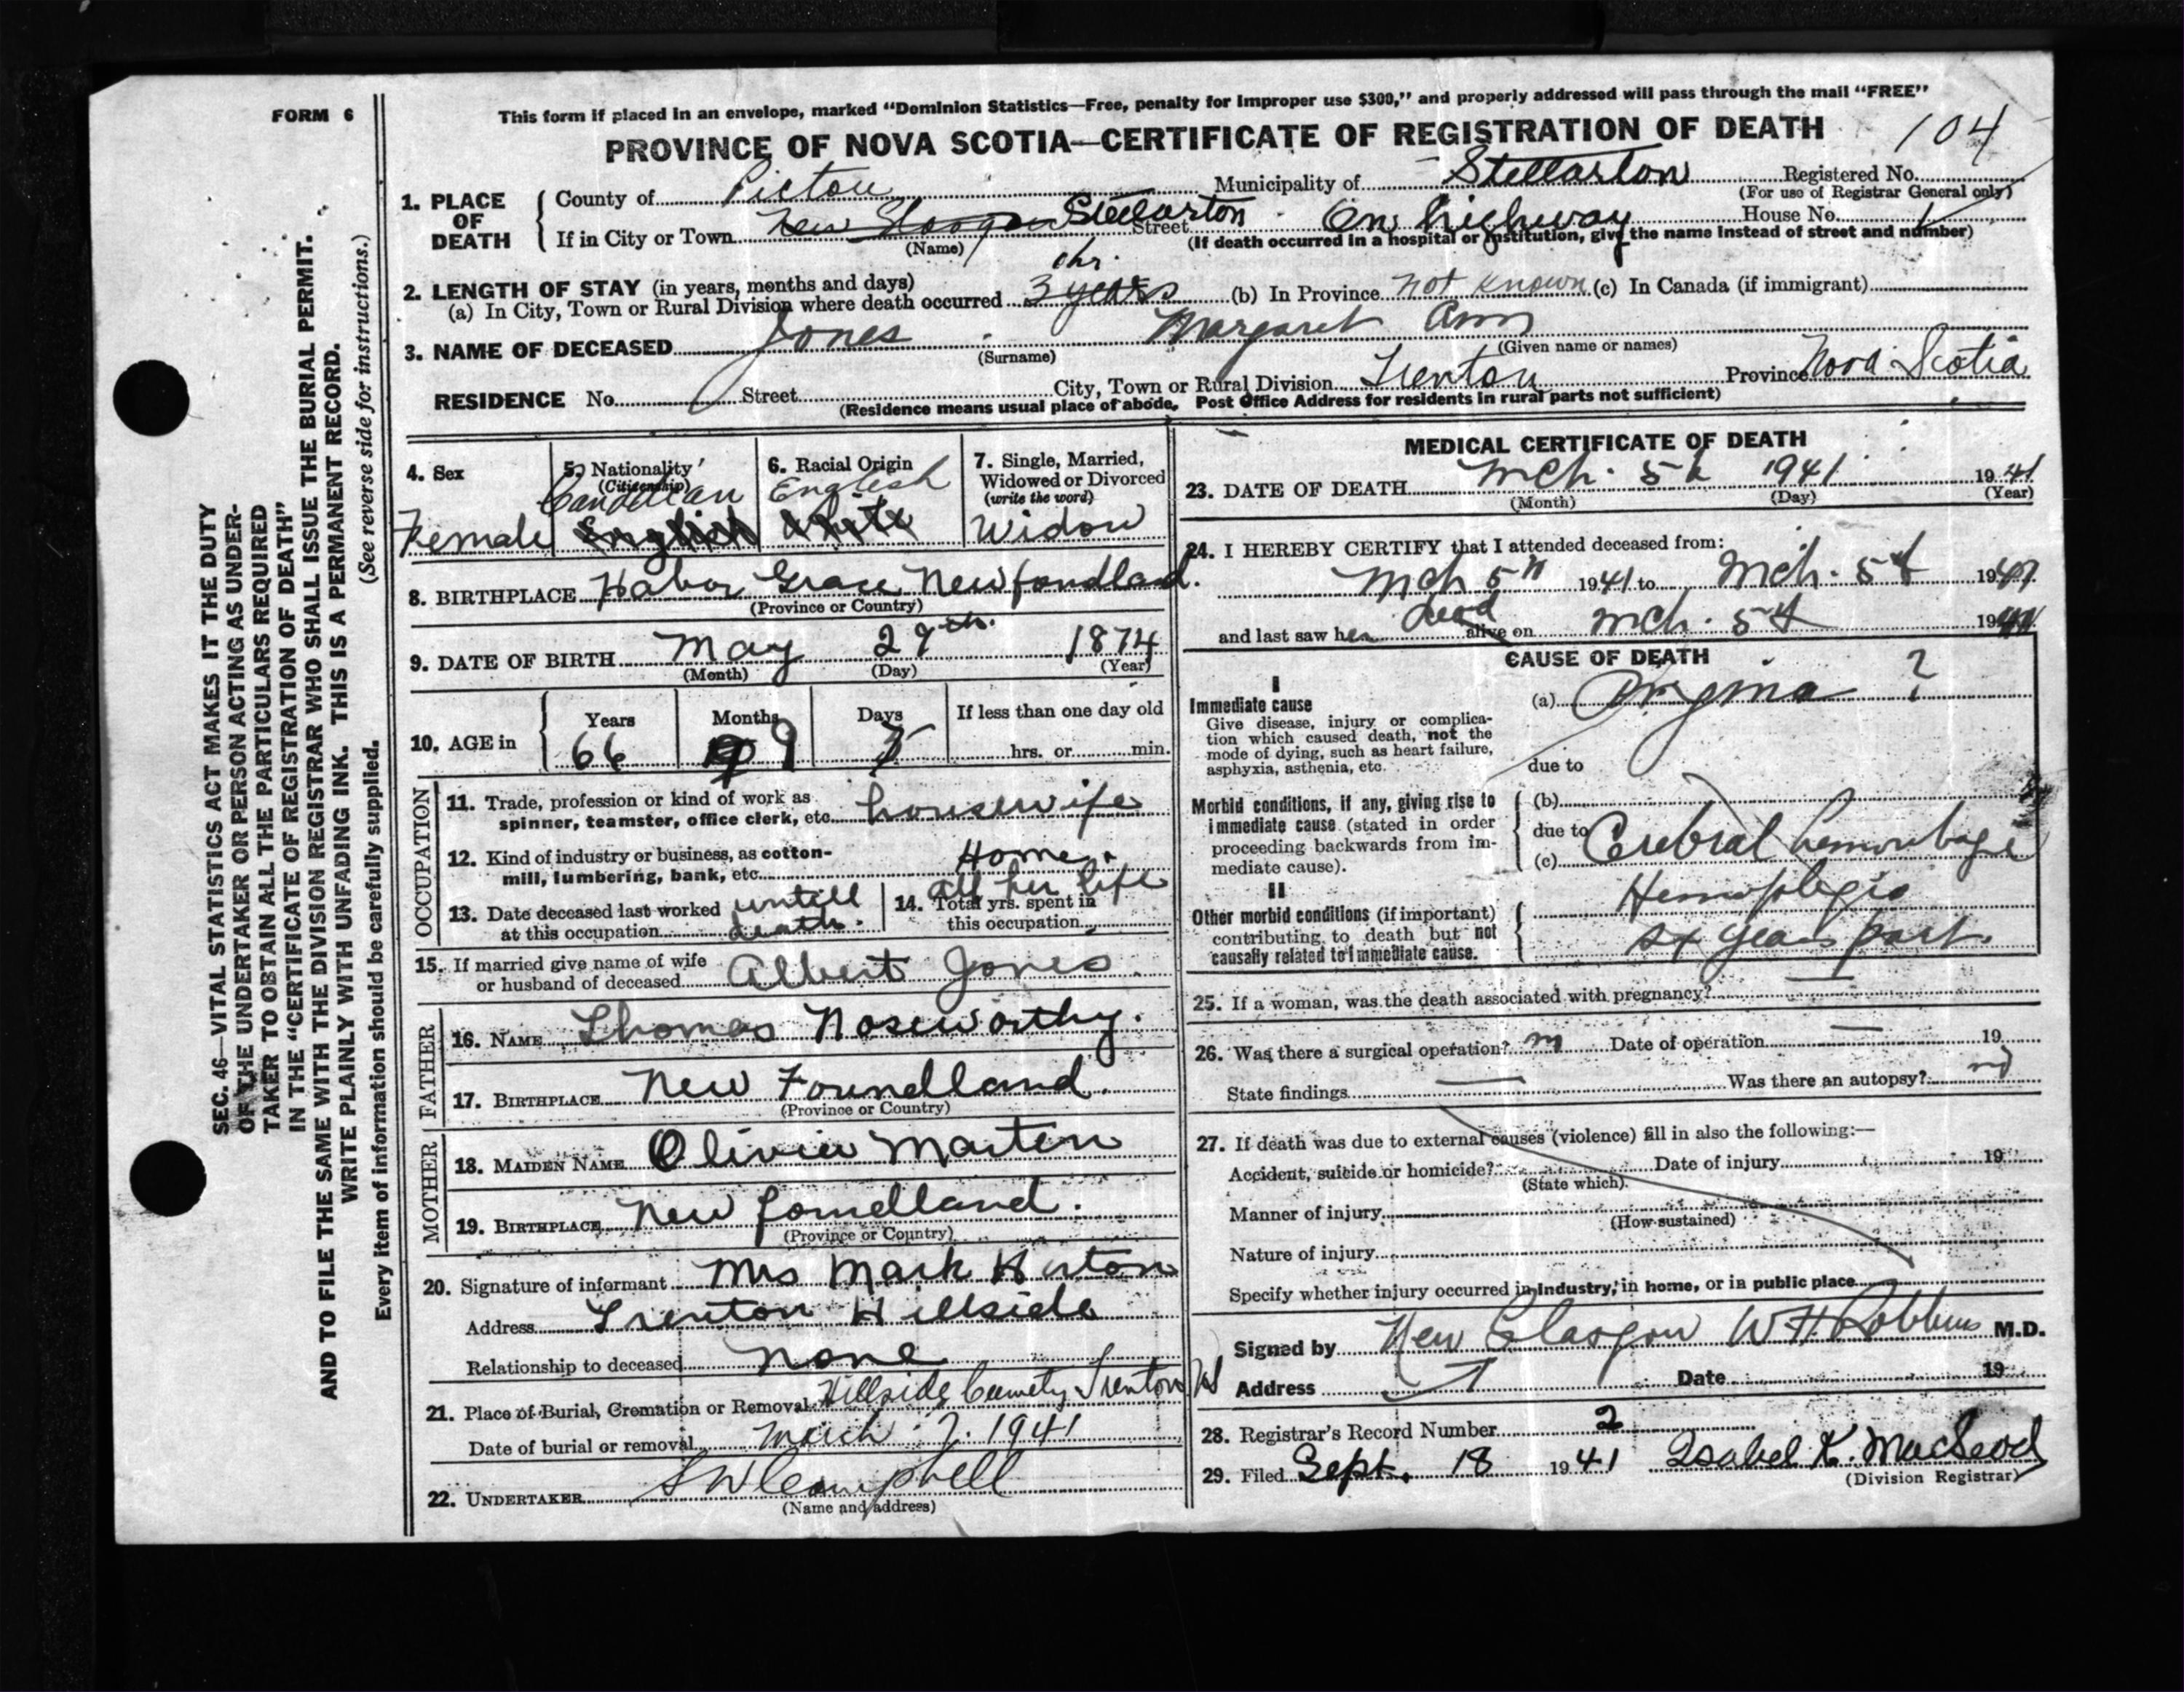 FORM 6
This form if placed in an envelope, marked "Dominion Statistics—Free, penalty for improper use $300," and properly addressed will pass through the mail "FREE"
PROVINCE OF NOVA SCOTIA—CERTIFICATE OF REGISTRATION OF DEATH
104
1. PLACE OF DEATH
County of Pictou Municipality of Stellarton Registered No.
(For use of Registrar General only)
If in City or Town New Stellarton Street On highway House No.
(Name) (If death occurred in a hospital or institution, give the name instead of street and number)
2. LENGTH OF STAY (in years, months and days)
(a) In City, Town or Rural Division where death occurred 3 years hr. (b) In Province not known (c) In Canada (if immigrant)
3. NAME OF DECEASED Jones Margaret Ann
(Surname) (Given name or names)
RESIDENCE No. Street City, Town or Rural Division Trenton Province Nova Scotia
(Residence means usual place of abode. Post Office Address for residents in rural parts not sufficient)
4. Sex
Female
5. Nationality
(Citizenship)
Canadian
English
6. Racial Origin
English
White
7. Single, Married,
Widowed or Divorced
(write the word)
Widow
8. BIRTHPLACE Habor Grace Newfondland.
(Province or Country)
9. DATE OF BIRTH May 29th. 1874
(Month) (Day) (Year)
10. AGE in
Years Months Days If less than one day old
66 9 hrs. or min.
OCCUPATION
11. Trade, profession or kind of work as
spinner, teamster, office clerk, etc. housewife
12. Kind of industry or business, as cotton-
mill, lumbering, bank, etc. Home.
13. Date deceased last worked
at this occupation untill
death.
14. Total yrs. spent in
this occupation all her life
15. If married give name of wife
or husband of deceased Albert Jones
FATHER
16. NAME Thomas Noseworthy.
17. BIRTHPLACE New Foundland.
(Province or Country)
MOTHER
18. MAIDEN NAME Olivia Marten
19. BIRTHPLACE New fondland.
(Province or Country)
20. Signature of informant Mrs Mark
Address Trenton Hillside
Relationship to deceased none
21. Place of Burial, Cremation or Removal Hillside Cemety Trenton NS
Date of burial or removal March 7. 1941
22. UNDERTAKER S W Campbell
(Name and address)
MEDICAL CERTIFICATE OF DEATH
23. DATE OF DEATH Mch. 5 1941 1941
(Month) (Day) (Year)
24. I HEREBY CERTIFY that I attended deceased from:
Mch 5th 1941 to Mch. 5 1941
and last saw her dead alive on Mch. 5 1941
CAUSE OF DEATH
I
Immediate cause
Give disease, injury or complica-
tion which caused death, not the
mode of dying, such as heart failure,
asphyxia, asthenia, etc.
(a) ?
due to
Morbid conditions, if any, giving rise to
immediate cause (stated in order
proceeding backwards from im-
mediate cause).
(b)
due to
(c) Cerebral hemorrhage
II
Other morbid conditions (if important)
contributing to death but not
causally related to immediate cause.
Hemiplegia
years past.
25. If a woman, was the death associated with pregnancy? —
26. Was there a surgical operation? no Date of operation — 19
State findings — Was there an autopsy? no
27. If death was due to external causes (violence) fill in also the following:—
Accident, suicide or homicide? Date of injury 19
(State which)
Manner of injury
(How sustained)
Nature of injury
Specify whether injury occurred in industry, in home, or in public place
Signed by New Glasgow W H Robbins M.D.
Address Date 19
28. Registrar's Record Number 2
29. Filed Sept. 18 1941 Isabel K. MacLeod
(Division Registrar)
SEC. 46—VITAL STATISTICS ACT MAKES IT THE DUTY
OF THE UNDERTAKER OR PERSON ACTING AS UNDER-
TAKER TO OBTAIN ALL THE PARTICULARS REQUIRED
IN THE "CERTIFICATE OF REGISTRATION OF DEATH"
AND TO FILE THE SAME WITH THE DIVISION REGISTRAR WHO SHALL ISSUE THE BURIAL PERMIT.
WRITE PLAINLY WITH UNFADING INK. THIS IS A PERMANENT RECORD.
(See reverse side for instructions.)
Every item of information should be carefully supplied.